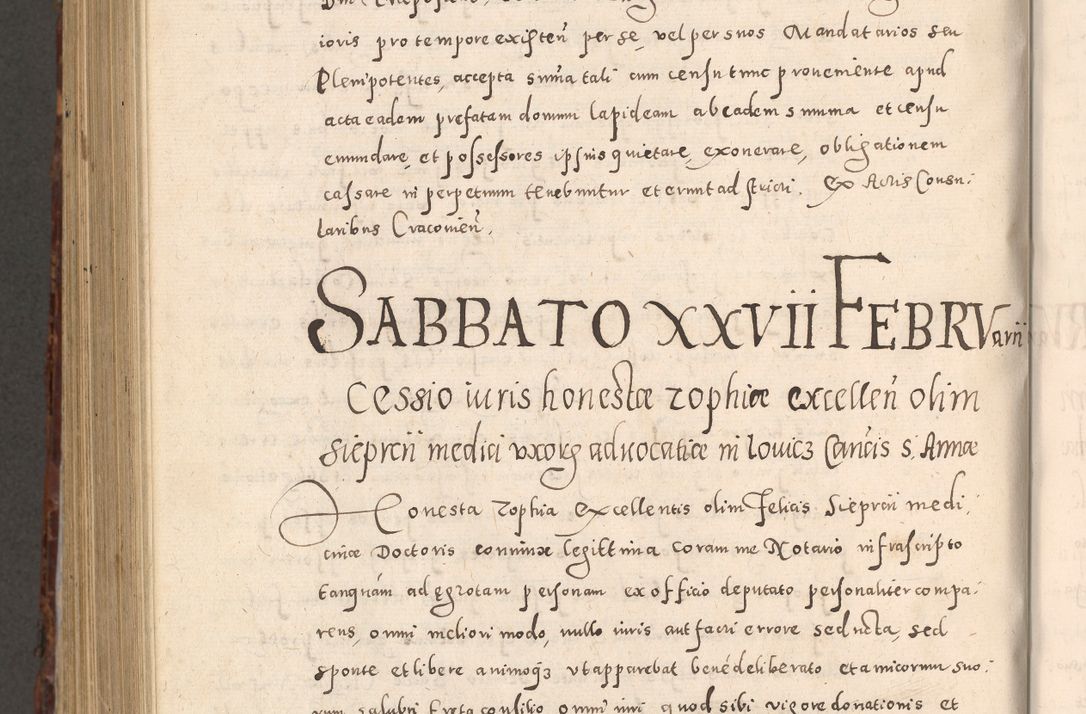 ioris pro tempore existen̄ per se, vel per suos Mandatarios seu
Plenipotentes, accepta summa tali cum censu tunc proveniente apud
acta eadem prefatam domum lapideam ab eadem summa et censu
emundare, et possessores ipsius quietare, exonerare, obligationem
cassare in perpetuum tenebuntur et erunt adstricti. Ex Actis Consu:
laribus Cracovien̄.
SABBATO XXVII FEBRVarii
Cessio iuris honestæ Zophiæ excellen̄ olim
Sieprcii medici uxoris advocatiæ in Lovicz Can̄cis S. Annæ
Honesta Zophia Excellentis olim Felicis Sieprcii medi,
cinæ Doctoris coniunx legittima coram me Notario infrascripto
tanquam ad ęgrotam personam ex officio deputato personaliter compa:
rens, omni meliori modo, nullo iuris aut facti errore seducta, sed
sponte et libere animoq3 ut apparebat bene deliberato et amicorum suo:
rum salubri freta consilio omni iuri quod sibi vigore donationis et